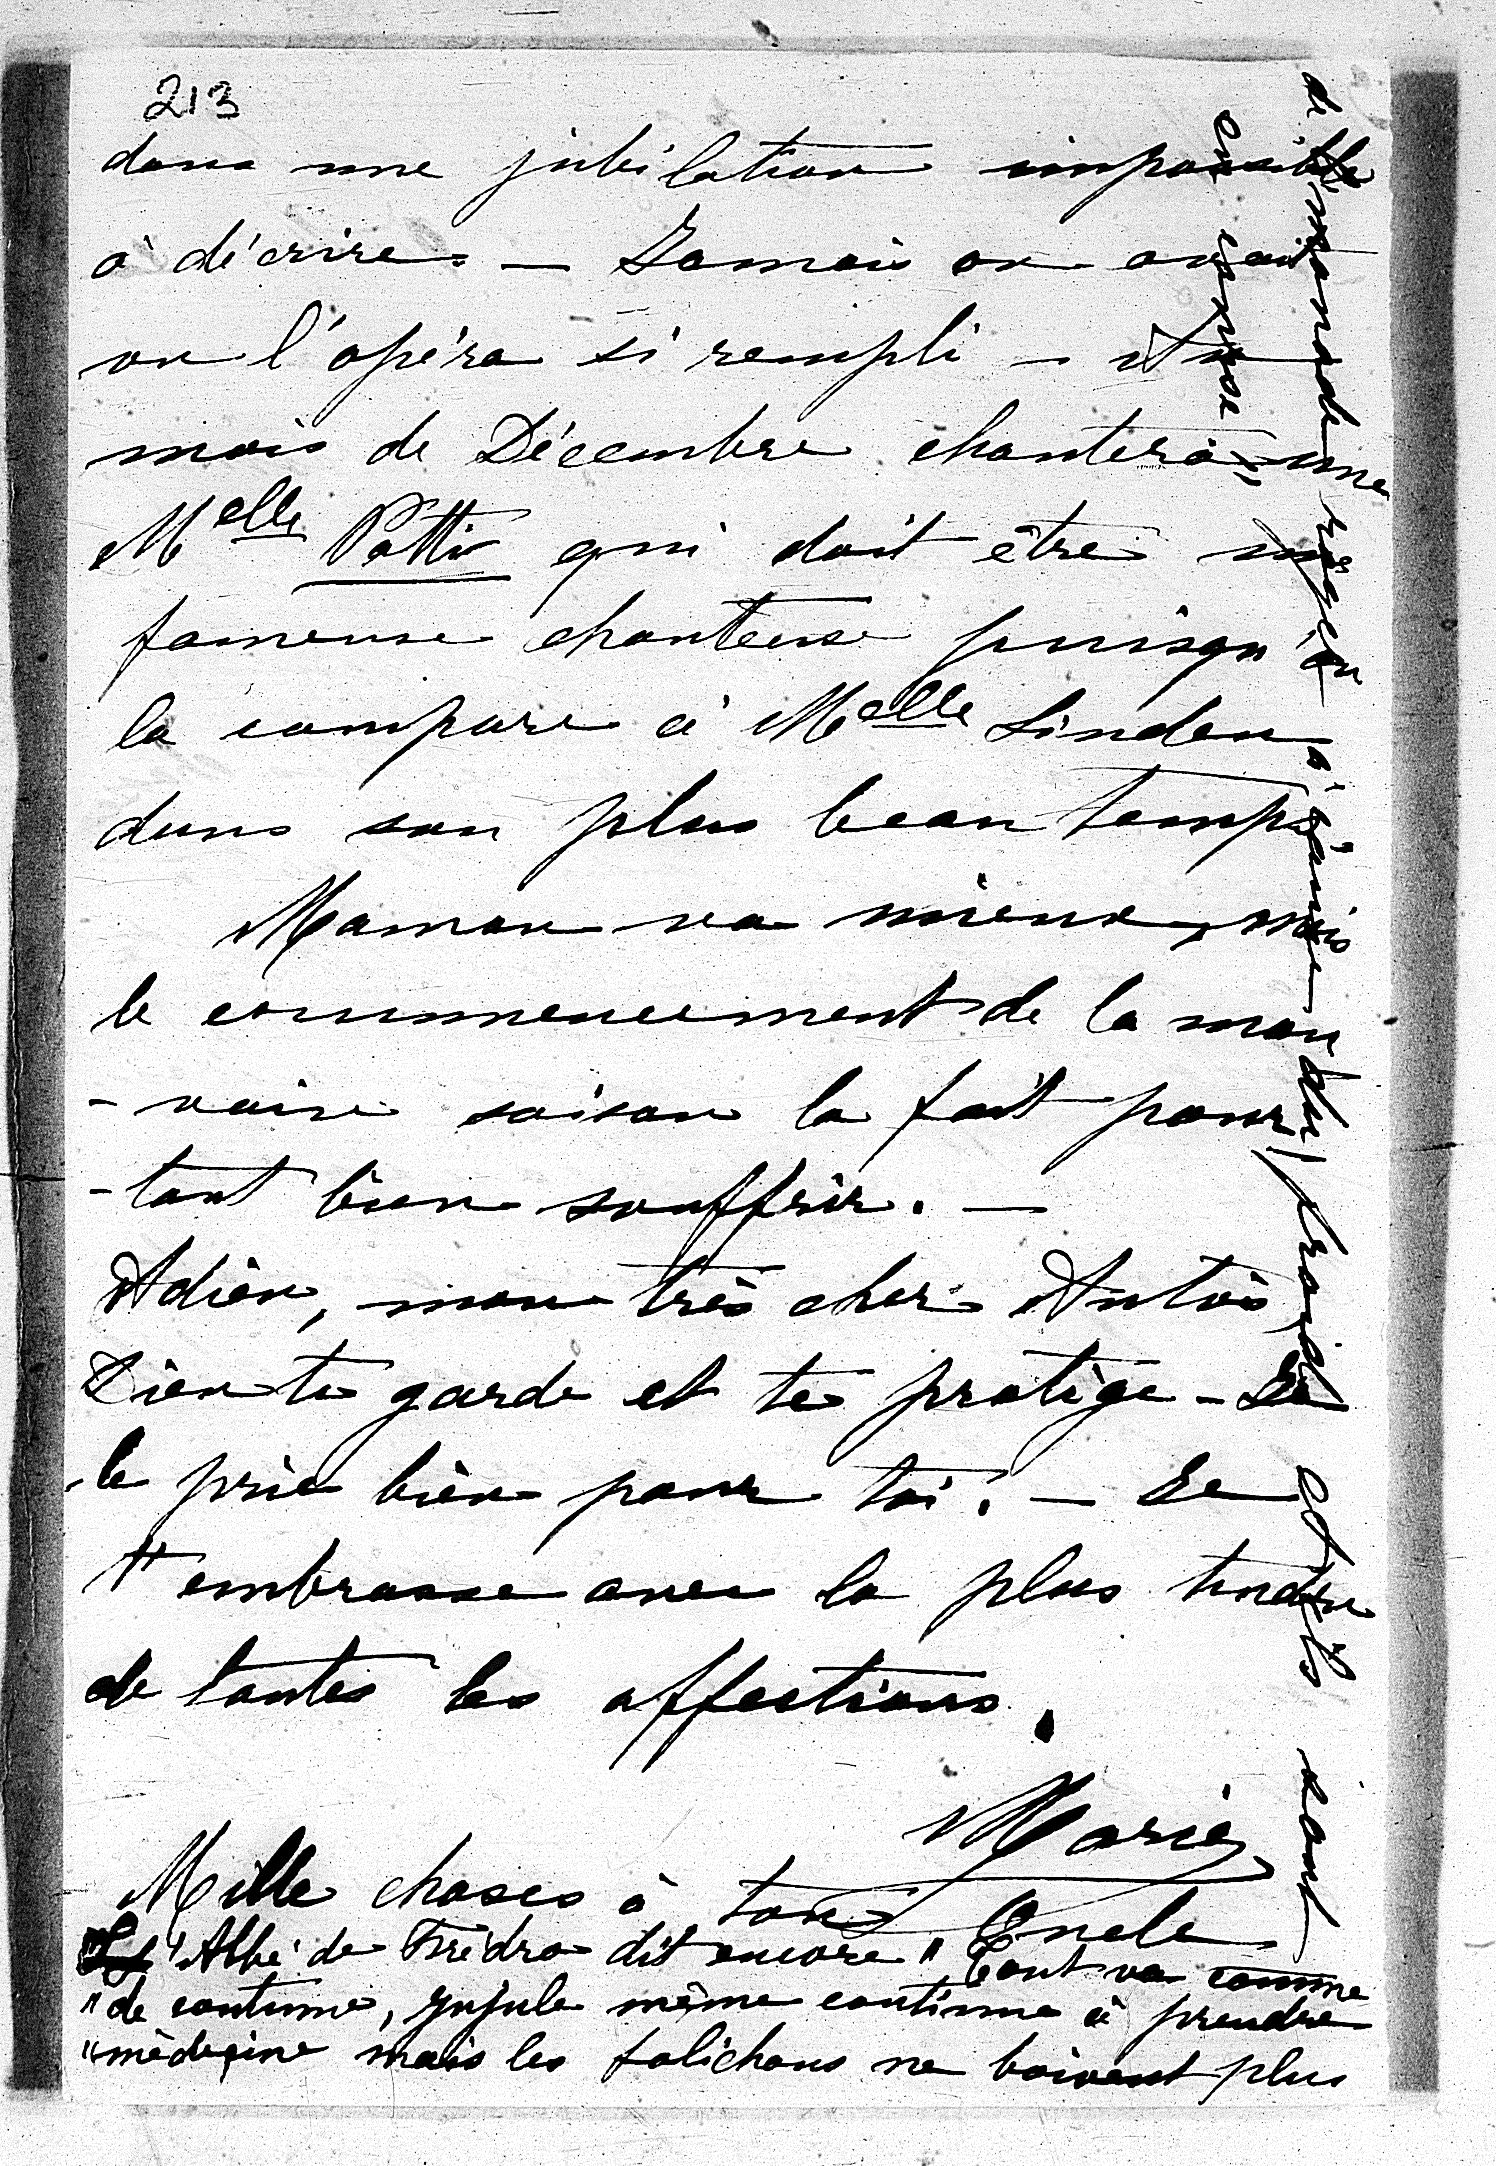 213
dans une jubilation impossible
à décrire. — Jamais on avait
vu l'opéra si rempli — Au
mois de Décembre chantera une
Melle Patti qui doit être une
fameuse chanteuse puisqu'on
la compare à Melle Linden
dans son plus beau temps
Maman va mieux, mais
le commencement de la mau
-vaise saison la fait pour
-tant bien souffrir. —
Adieu, mon très cher Antoi
Dieu te garde et te protège - Je
le prie bien pour toi. — Je
t'embrasse avec la plus tendre
de toutes les affections.
Marie
Mille choses à ton Oncle
L'Abbé de Frédro dit encore "Tout va comme
"de coutume, jujule même continue à prendre
"médecine mais les folichons ne boivent plus
de limonade
à cause du froid et ils sont